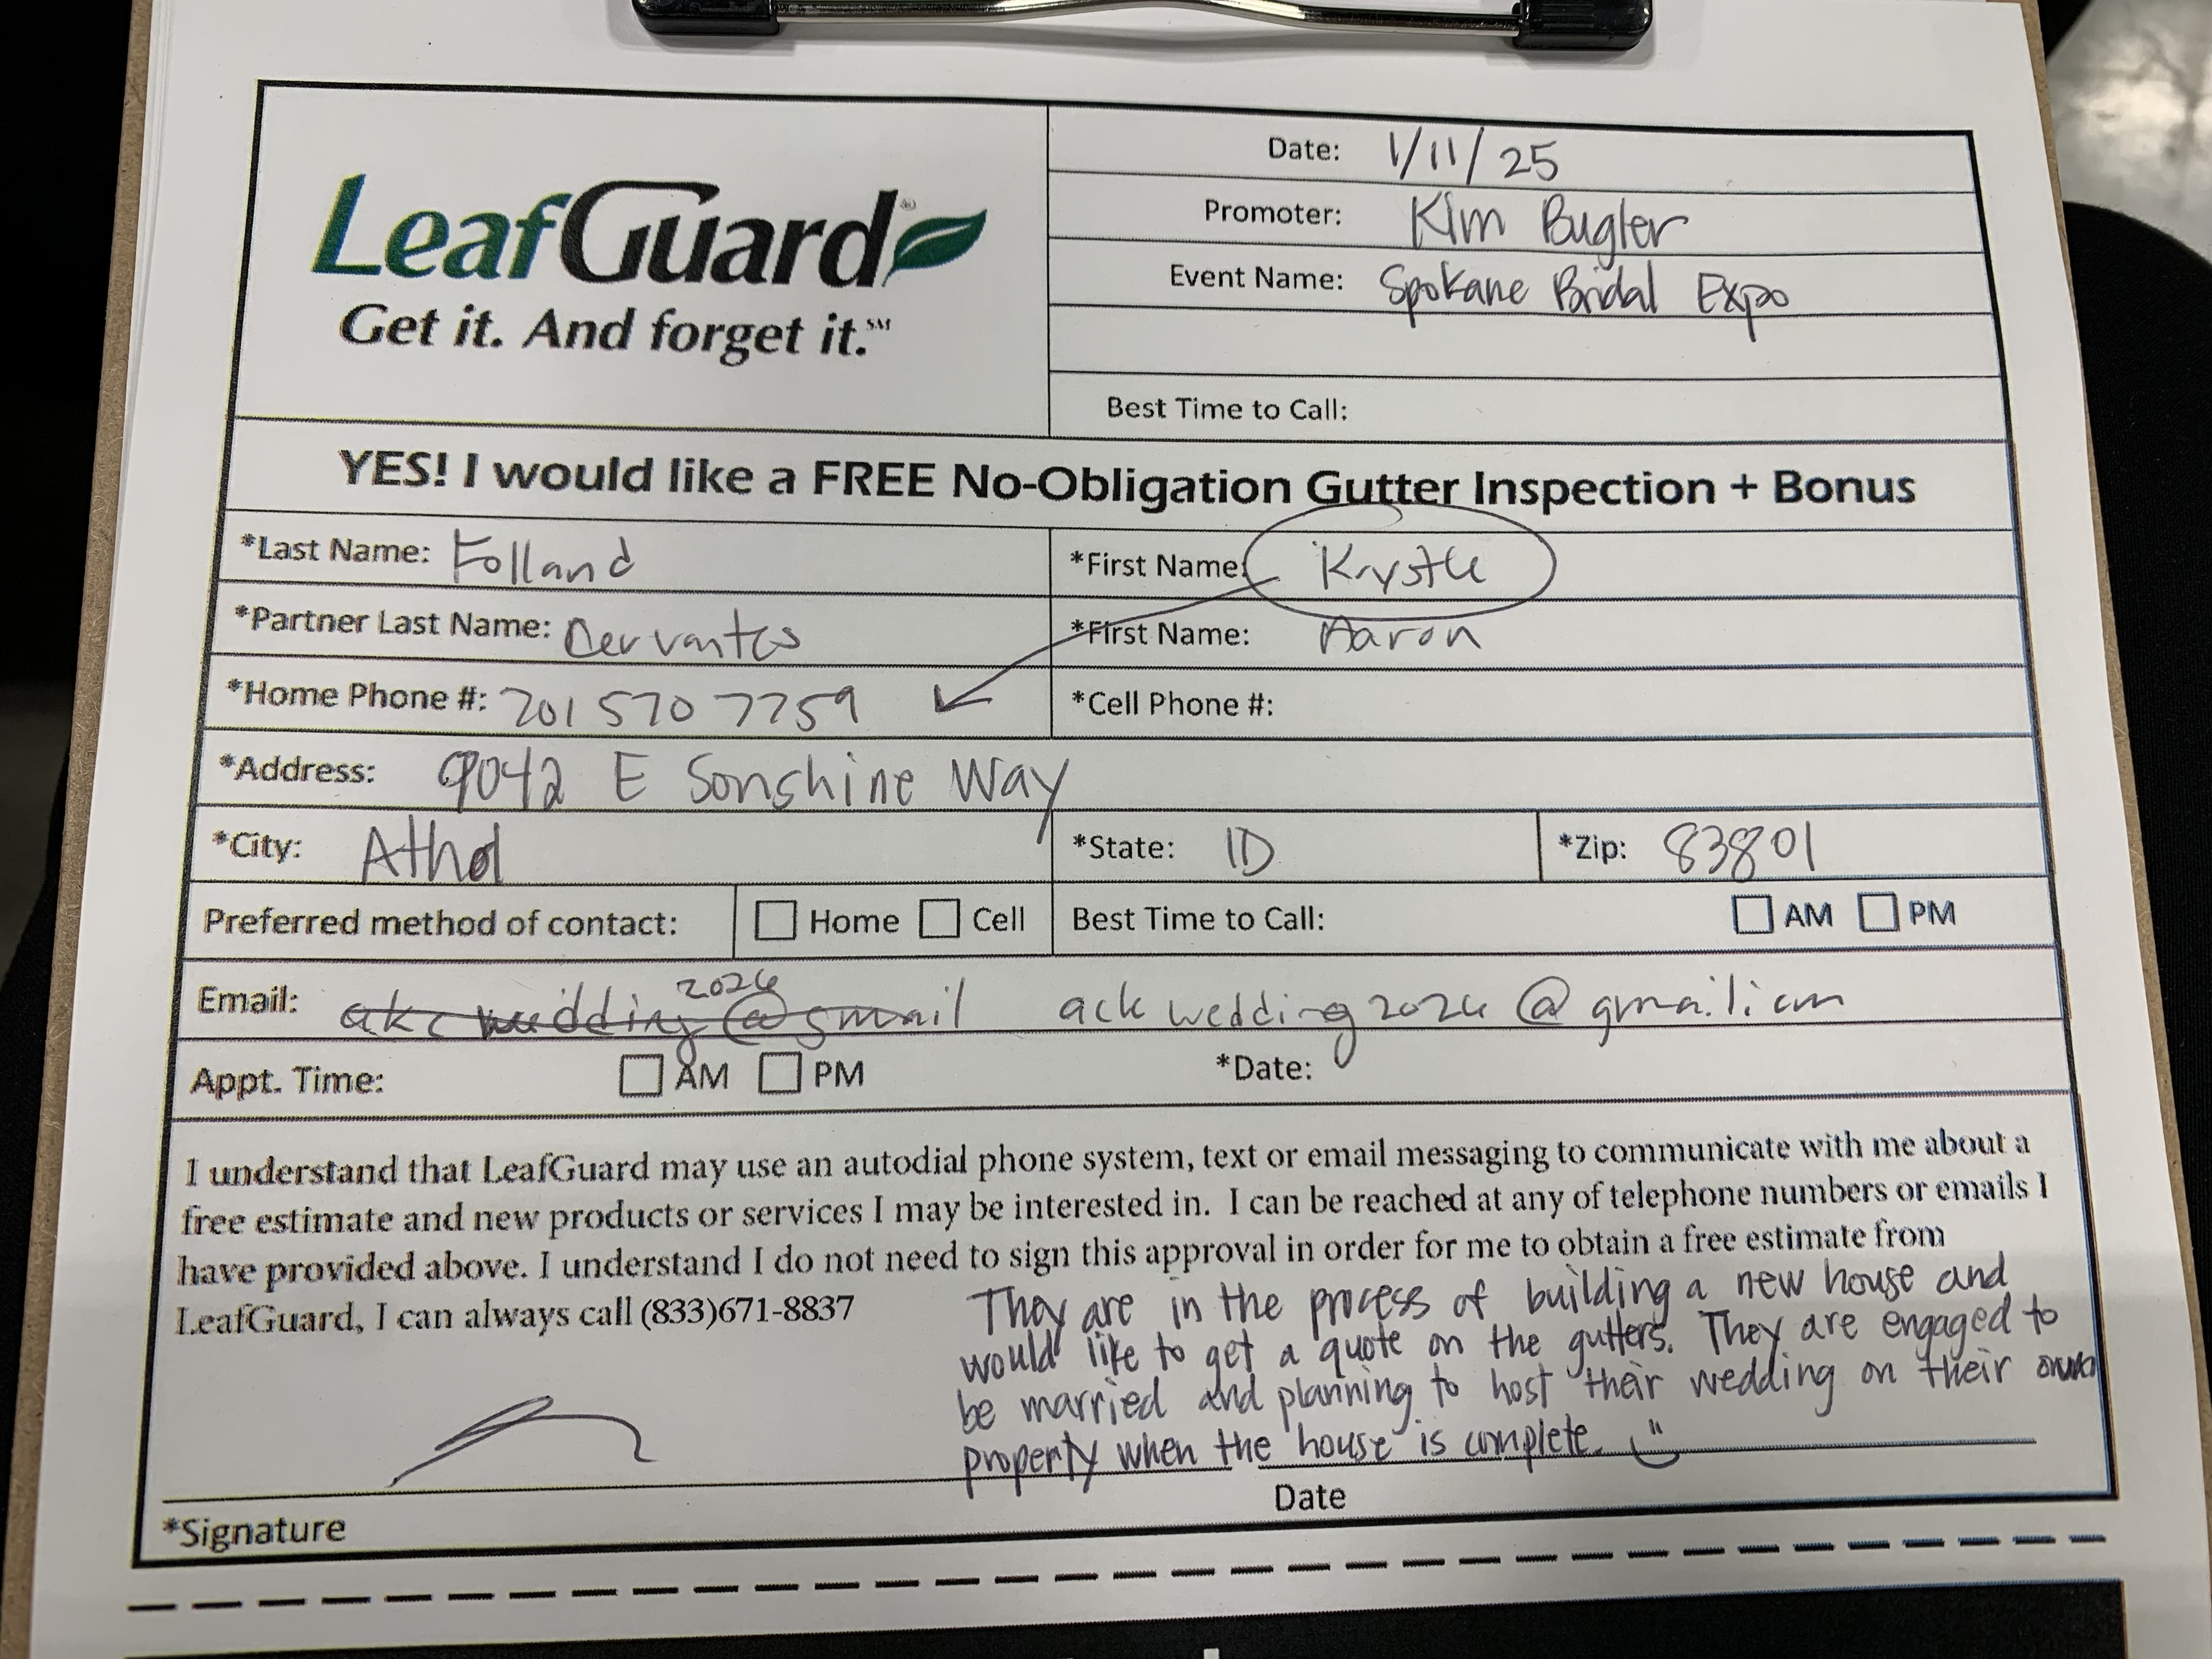 LeafGuard®
Get it. And forget it.℠
Date: 1/11/25
Promoter: Kim Bugler
Event Name: Spokane Bridal Expo
Best Time to Call:
YES! I would like a FREE No-Obligation Gutter Inspection + Bonus
*Last Name: Folland *First Name: Krystle
*Partner Last Name: Cervantes *First Name: Aaron
*Home Phone #: 701 570 7759 *Cell Phone #:
*Address: 9042 E Sonshine Way
*City: Athol *State: ID *Zip: 83801
Preferred method of contact: Home Cell Best Time to Call: AM PM
2026
Email: akc wedding@gmail ackwedding2026@gmail.com
Appt. Time: AM PM *Date:
I understand that LeafGuard may use an autodial phone system, text or email messaging to communicate with me about a
free estimate and new products or services I may be interested in. I can be reached at any of telephone numbers or emails I
have provided above. I understand I do not need to sign this approval in order for me to obtain a free estimate from
LeafGuard, I can always call (833)671-8837
They are in the process of building a new house and
would like to get a quote on the gutters. They are engaged to
be married and planning to host their wedding on their own
property when the house is complete.
*Signature Date